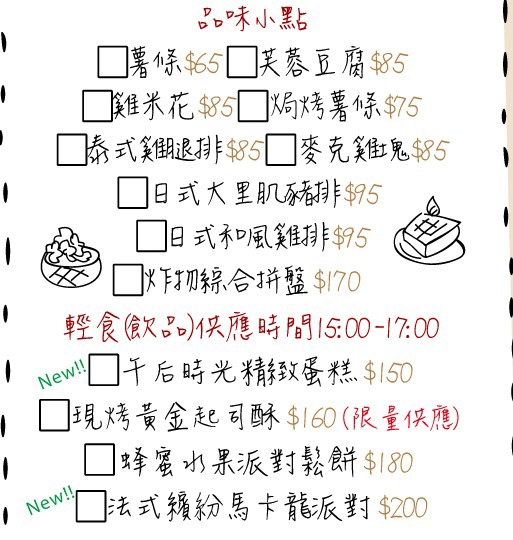 品味小點
□薯條$65 □芙蓉豆腐$85
□雞米花$85 □焗烤薯條$75
□泰式雞腿排$85 □麥克雞塊$85
□日式大里肌豬排$95
□日式和風雞排$95
□炸物綜合拼盤$170
輕食(飲品)供應時間15:00-17:00
New!! □午后時光精緻蛋糕$150
□現烤黃金起司酥$160(限量供應)
□蜂蜜水果派對鬆餅$180
New!! □法式繽紛馬卡龍派對$200